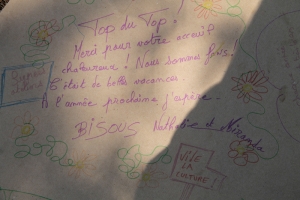 Top du Top !
Merci pour votre accueil
chaleureux ! Nous sommes
C'était de belles vacances.
A l'année prochaine j'espère.
BISOUS Nathalie et Miranda
VIVE
LA
CULTURE !